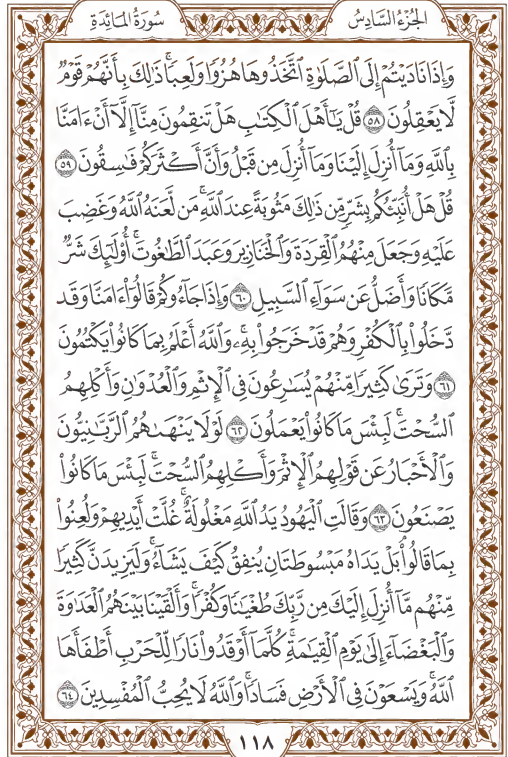 سُورَةُ المَائِدَةِ
الجُزْءُ السَّادِسُ
وَإِذَا نَادَيْتُمْ إِلَى ٱلصَّلَوٰةِ ٱتَّخَذُوهَا هُزُوًا وَلَعِبًا ۚ ذَٰلِكَ بِأَنَّهُمْ قَوْمٌ
لَّا يَعْقِلُونَ ٥٨ قُلْ يَٰٓأَهْلَ ٱلْكِتَٰبِ هَلْ تَنقِمُونَ مِنَّآ إِلَّآ أَنْ ءَامَنَّا
بِٱللَّهِ وَمَآ أُنزِلَ إِلَيْنَا وَمَآ أُنزِلَ مِن قَبْلُ وَأَنَّ أَكْثَرَكُمْ فَٰسِقُونَ ٥٩
قُلْ هَلْ أُنَبِّئُكُم بِشَرٍّ مِّن ذَٰلِكَ مَثُوبَةً عِندَ ٱللَّهِ ۚ مَن لَّعَنَهُ ٱللَّهُ وَغَضِبَ
عَلَيْهِ وَجَعَلَ مِنْهُمُ ٱلْقِرَدَةَ وَٱلْخَنَازِيرَ وَعَبَدَ ٱلطَّٰغُوتَ ۚ أُو۟لَٰٓئِكَ شَرٌّ
مَّكَانًا وَأَضَلُّ عَن سَوَآءِ ٱلسَّبِيلِ ٦٠ وَإِذَا جَآءُوكُمْ قَالُوٓا۟ ءَامَنَّا وَقَد
دَّخَلُوا۟ بِٱلْكُفْرِ وَهُمْ قَدْ خَرَجُوا۟ بِهِۦ ۚ وَٱللَّهُ أَعْلَمُ بِمَا كَانُوا۟ يَكْتُمُونَ
٦١ وَتَرَىٰ كَثِيرًا مِّنْهُمْ يُسَٰرِعُونَ فِى ٱلْإِثْمِ وَٱلْعُدْوَٰنِ وَأَكْلِهِمُ
ٱلسُّحْتَ ۚ لَبِئْسَ مَا كَانُوا۟ يَعْمَلُونَ ٦٢ لَوْلَا يَنْهَىٰهُمُ ٱلرَّبَّٰنِيُّونَ
وَٱلْأَحْبَارُ عَن قَوْلِهِمُ ٱلْإِثْمَ وَأَكْلِهِمُ ٱلسُّحْتَ ۚ لَبِئْسَ مَا كَانُوا۟
يَصْنَعُونَ ٦٣ وَقَالَتِ ٱلْيَهُودُ يَدُ ٱللَّهِ مَغْلُولَةٌ ۚ غُلَّتْ أَيْدِيهِمْ وَلُعِنُوا۟
بِمَا قَالُوا۟ ۘ بَلْ يَدَاهُ مَبْسُوطَتَانِ يُنفِقُ كَيْفَ يَشَآءُ ۚ وَلَيَزِيدَنَّ كَثِيرًا
مِّنْهُم مَّآ أُنزِلَ إِلَيْكَ مِن رَّبِّكَ طُغْيَٰنًا وَكُفْرًا ۚ وَأَلْقَيْنَا بَيْنَهُمُ ٱلْعَدَٰوَةَ
وَٱلْبَغْضَآءَ إِلَىٰ يَوْمِ ٱلْقِيَٰمَةِ ۚ كُلَّمَآ أَوْقَدُوا۟ نَارًا لِّلْحَرْبِ أَطْفَأَهَا
ٱللَّهُ ۚ وَيَسْعَوْنَ فِى ٱلْأَرْضِ فَسَادًا ۚ وَٱللَّهُ لَا يُحِبُّ ٱلْمُفْسِدِينَ ٦٤
١١٨